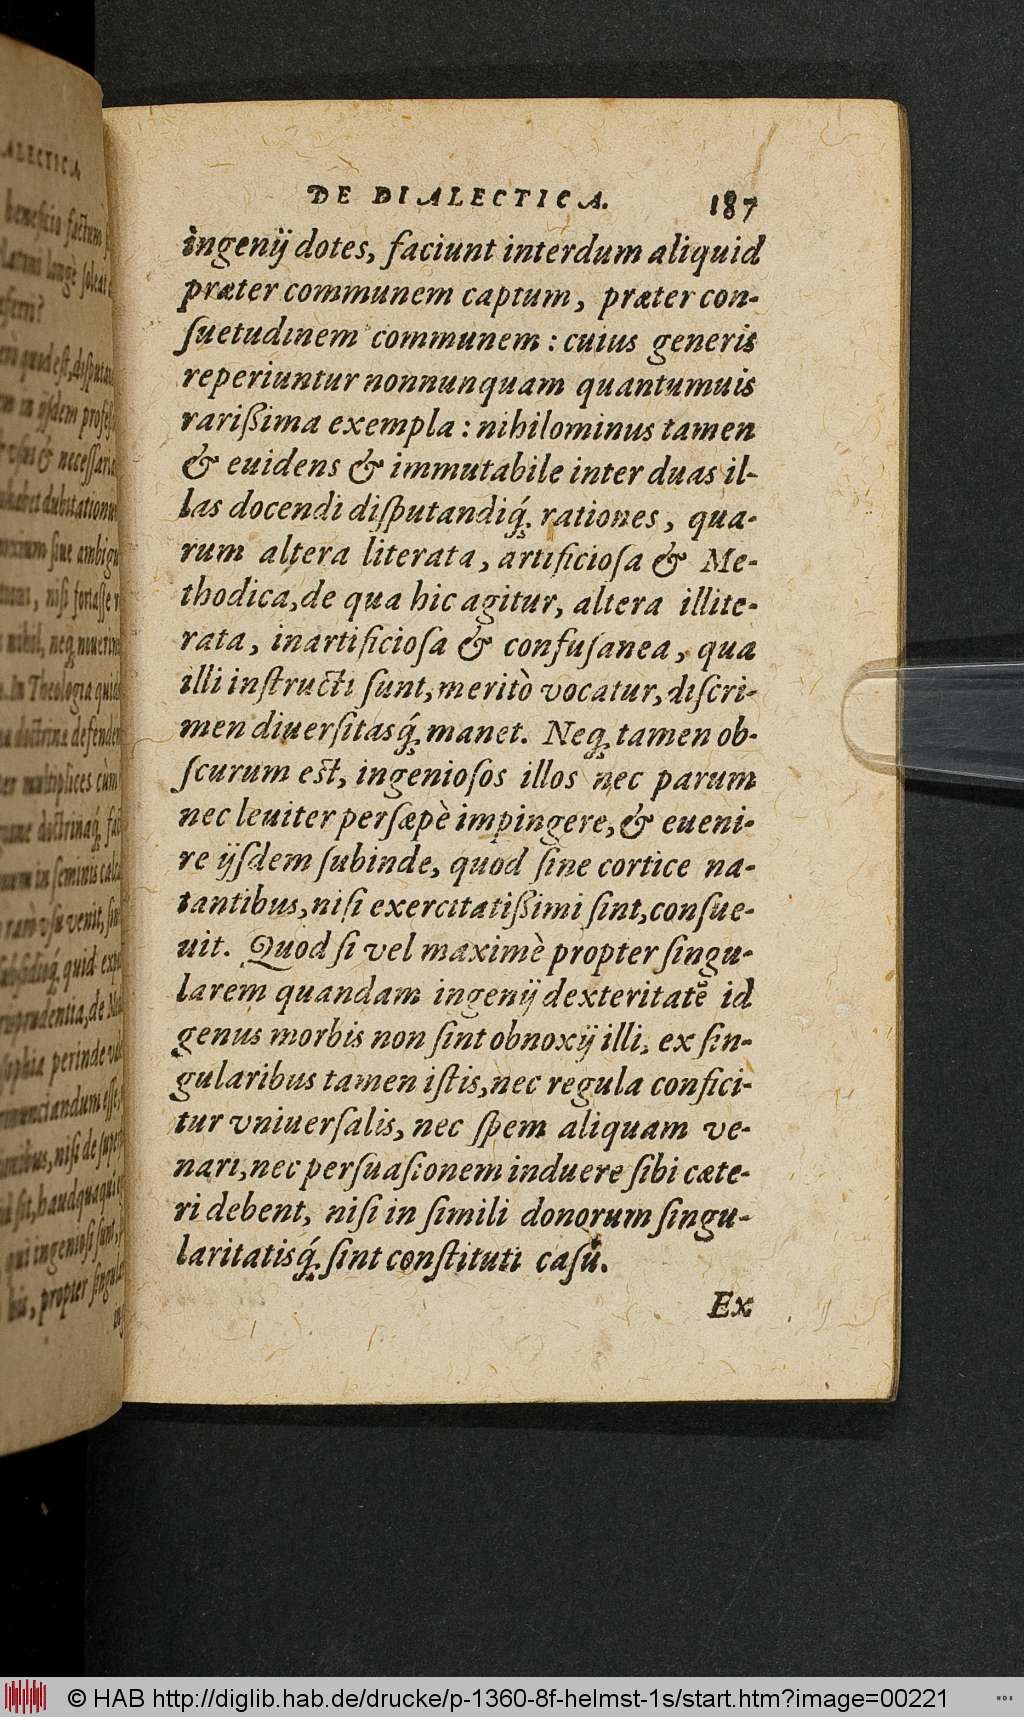 DE DIALECTICA. 187
ingenij dotes, faciunt interdum aliquid
præter communem captum, præter con-
ſuetudinem communem : cuius generis
reperiuntur nonnunquam quantumuis
rarißima exempla : nihilominus tamen
& euidens & immutabile inter duas il-
las docendi diſputandiq́; rationes, qua-
rum altera literata, artificioſa & Me-
thodica, de qua hic agitur, altera illite-
rata, inartificioſa & confuſanea, qua
illi inſtructi ſunt, meritò vocatur, diſcri-
men diuerſitasq́; manet. Neq; tamen ob-
ſcurum est, ingenioſos illos nec parum
nec leuiter perſæpè impingere, & eueni-
re ijſdem ſubinde, quod ſine cortice na-
tantibus, niſi exercitatißimi ſint, conſue-
uit. Quod ſi vel maximè propter ſingu-
larem quandam ingenij dexteritatē id
genus morbis non ſint obnoxij illi, ex ſin-
gularibus tamen iſtis, nec regula confici-
tur vniuerſalis, nec ſpem aliquam ve-
nari, nec perſuaſionem induere ſibi cæte-
ri debent, niſi in ſimili donorum ſingu-
laritatisq́; ſint conſtituti caſu.
Ex
© HAB http://diglib.hab.de/drucke/p-1360-8f-helmst-1s/start.htm?image=00221